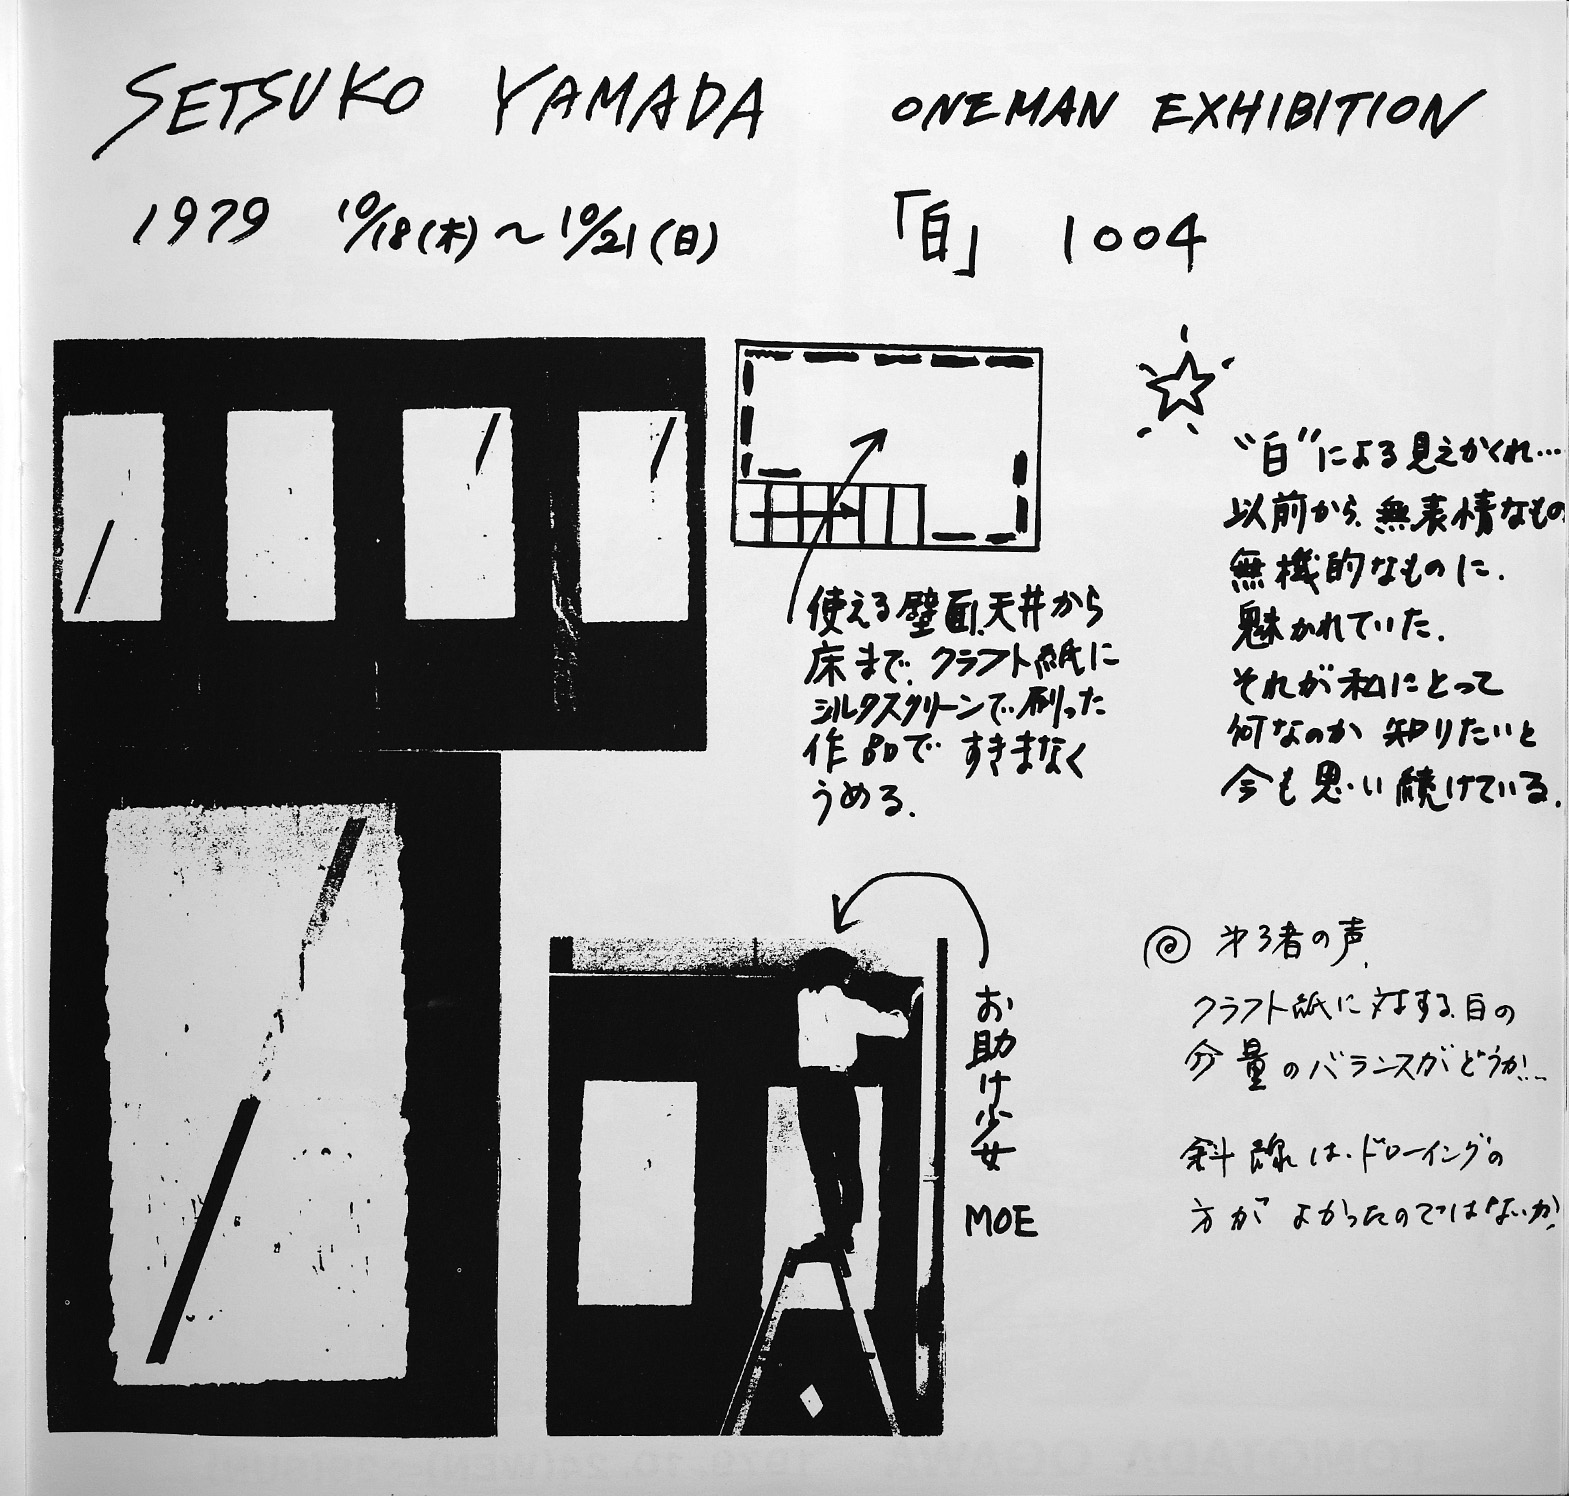 SETSUKO YAMADA ONEMAN EXHIBITION
1979 10/18(木)〜10/21(日) 「白」 1004
使える壁面、天井から
床まで、クラフト紙に
シルクスクリーンで刷った
作品で すきまなく
うめる.
"白"による見えかくれ…
以前から、無表情なもの
無機的なものに.
魅かれていた.
それが私にとって
何なのか 知りたいと
今も思い続けている.
お助け少女
MOE
才3者の声.
クラフト紙に対する.白の
分量のバランスがどうか!…
斜線は.ドローイングの
方が よかったのではないか?